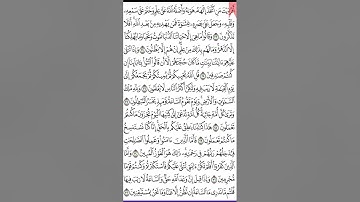 أَفَرَءَيْتَ مَنِ ٱتَّخَذَ إِلَٰهَهُۥ هَوَىٰهُ وَأَضَلَّهُ ٱللَّهُ عَلَىٰ عِلْمٍ وَخَتَمَ عَلَىٰ سَمْعِهِۦ
وَقَلْبِهِۦ وَجَعَلَ عَلَىٰ بَصَرِهِۦ غِشَٰوَةً فَمَن يَهْدِيهِ مِنۢ بَعْدِ ٱللَّهِ أَفَلَا
تَذَكَّرُونَ ٢٣ وَقَالُوا۟ مَا هِىَ إِلَّا حَيَاتُنَا ٱلدُّنْيَا نَمُوتُ وَنَحْيَا وَمَا يُهْلِكُنَآ
إِلَّا ٱلدَّهْرُ وَمَا لَهُم بِذَٰلِكَ مِنْ عِلْمٍ إِنْ هُمْ إِلَّا يَظُنُّونَ ٢٤ وَإِذَا تُتْلَىٰ
عَلَيْهِمْ ءَايَٰتُنَا بَيِّنَٰتٍ مَّا كَانَ حُجَّتَهُمْ إِلَّآ أَن قَالُوا۟ ٱئْتُوا۟ بِـَٔابَآئِنَآ إِن
كُنتُمْ صَٰدِقِينَ ٢٥ قُلِ ٱللَّهُ يُحْيِيكُمْ ثُمَّ يُمِيتُكُمْ ثُمَّ يَجْمَعُكُمْ إِلَىٰ
يَوْمِ ٱلْقِيَٰمَةِ لَا رَيْبَ فِيهِ وَلَٰكِنَّ أَكْثَرَ ٱلنَّاسِ لَا يَعْلَمُونَ ٢٦ وَلِلَّهِ مُلْكُ
ٱلسَّمَٰوَٰتِ وَٱلْأَرْضِ وَيَوْمَ تَقُومُ ٱلسَّاعَةُ يَوْمَئِذٍ يَخْسَرُ ٱلْمُبْطِلُونَ ٢٧
وَتَرَىٰ كُلَّ أُمَّةٍ جَاثِيَةً كُلُّ أُمَّةٍ تُدْعَىٰٓ إِلَىٰ كِتَٰبِهَا ٱلْيَوْمَ تُجْزَوْنَ مَا كُنتُمْ
تَعْمَلُونَ ٢٨ هَٰذَا كِتَٰبُنَا يَنطِقُ عَلَيْكُم بِٱلْحَقِّ إِنَّا كُنَّا نَسْتَنسِخُ
مَا كُنتُمْ تَعْمَلُونَ ٢٩ فَأَمَّا ٱلَّذِينَ ءَامَنُوا۟ وَعَمِلُوا۟ ٱلصَّٰلِحَٰتِ
فَيُدْخِلُهُمْ رَبُّهُمْ فِى رَحْمَتِهِۦ ذَٰلِكَ هُوَ ٱلْفَوْزُ ٱلْمُبِينُ ٣٠
وَأَمَّا ٱلَّذِينَ كَفَرُوٓا۟ أَفَلَمْ تَكُنْ ءَايَٰتِى تُتْلَىٰ عَلَيْكُمْ فَٱسْتَكْبَرْتُمْ وَكُنتُمْ قَوْمًا
مُّجْرِمِينَ ٣١ وَإِذَا قِيلَ إِنَّ وَعْدَ ٱللَّهِ حَقٌّ وَٱلسَّاعَةُ لَا رَيْبَ فِيهَا
قُلْتُم مَّا نَدْرِى مَا ٱلسَّاعَةُ إِن نَّظُنُّ إِلَّا ظَنًّا وَمَا نَحْنُ بِمُسْتَيْقِنِينَ ٣٢